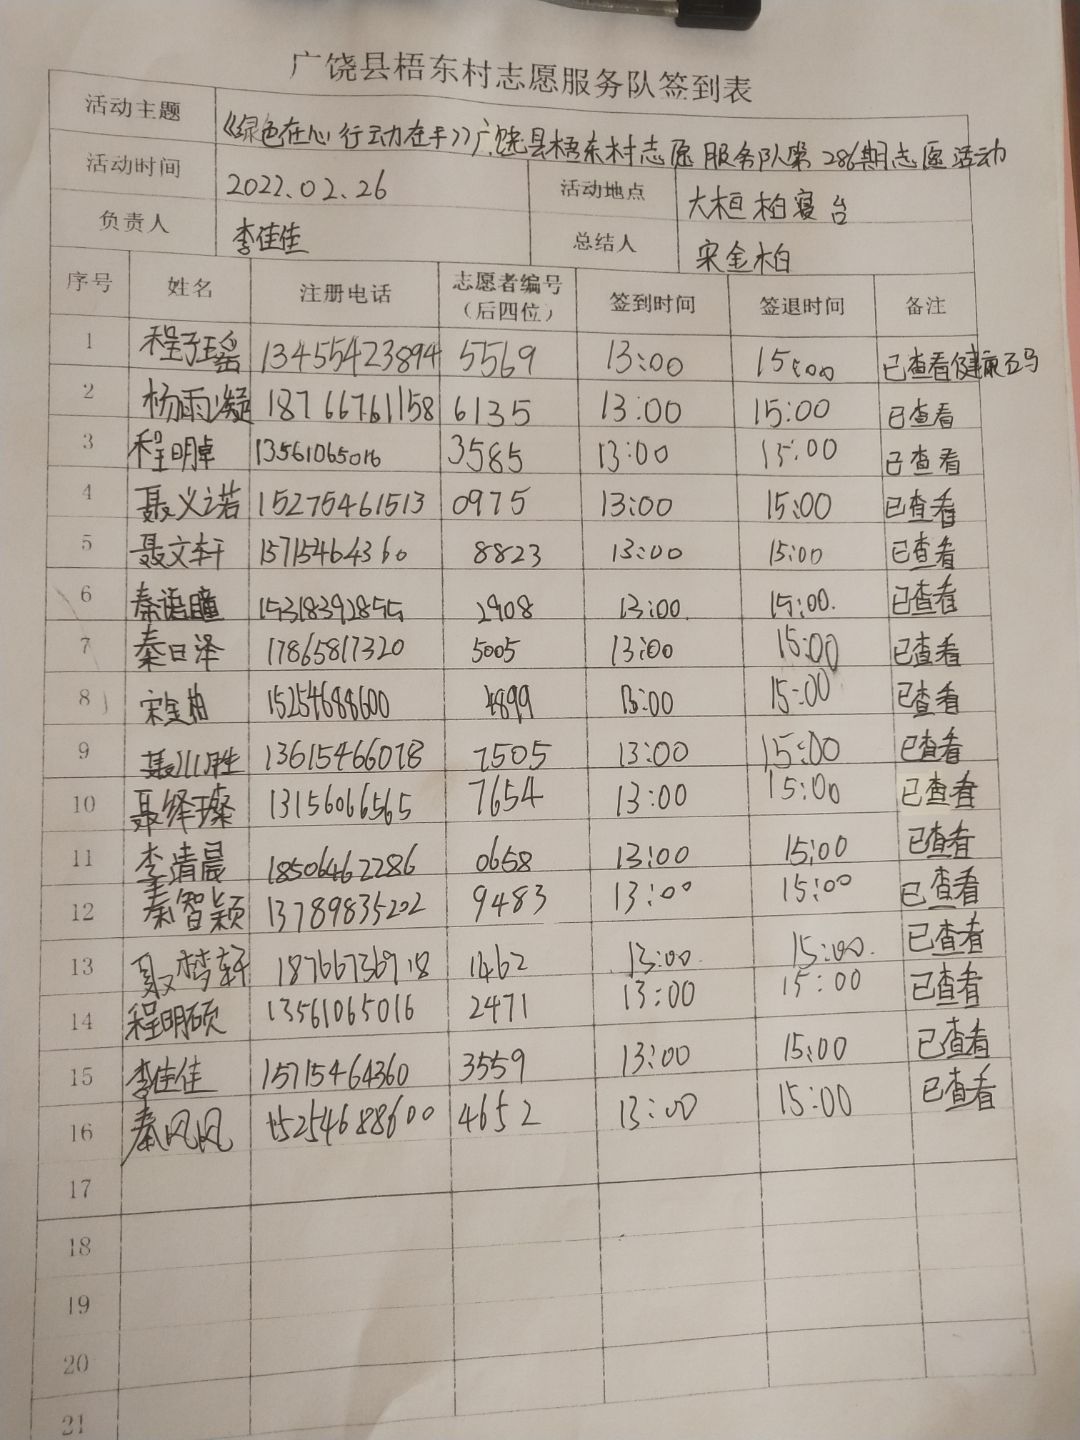 广饶县梧东村志愿服务队签到表
活动主题 《绿色在心 行动在手》广饶县梧东村志愿服务队第286期志愿活动
活动时间 2022.02.26 活动地点 大桓柏寝台
负责人 李佳佳 总结人 宋金柏
序号 姓名 注册电话 志愿者编号（后四位） 签到时间 签退时间 备注
1 程子瑶 13455423894 5569 13:00 15:00 已查看健康码
2 杨雨凝 18766761158 6135 13:00 15:00 已查看
3 程明卓 13561065016 3585 13:00 15:00 已查看
4 聂义诺 15275461513 0975 13:00 15:00 已查看
5 聂文轩 15715464360 8823 13:00 15:00 已查看
6 秦语瞳 15318392855 2908 13:00 15:00. 已查看
7 秦日泽 17865817320 5005 13:00 15:00 已查看
8 宋金柏 15254688600 1899 13:00 15:00 已查看
9 聂川胜 13615466078 7505 13:00 15:00 已查看
10 聂绎璨 13156066565 7654 13:00 15:00 已查看
11 李清晨 18506462286 0658 13:00 15:00 已查看
12 秦智颖 13789835202 9483 13:00 15:00 已查看
13 聂梦轩 1462 13:00. 15:00. 已查看
14 程明硕 13561065016 2471 13:00 15:00 已查看
15 李佳佳 15715464360 3559 13:00 15:00 已查看
16 秦风风 15254688600 4652 13:00 15:00 已查看
17
18
19
20
21